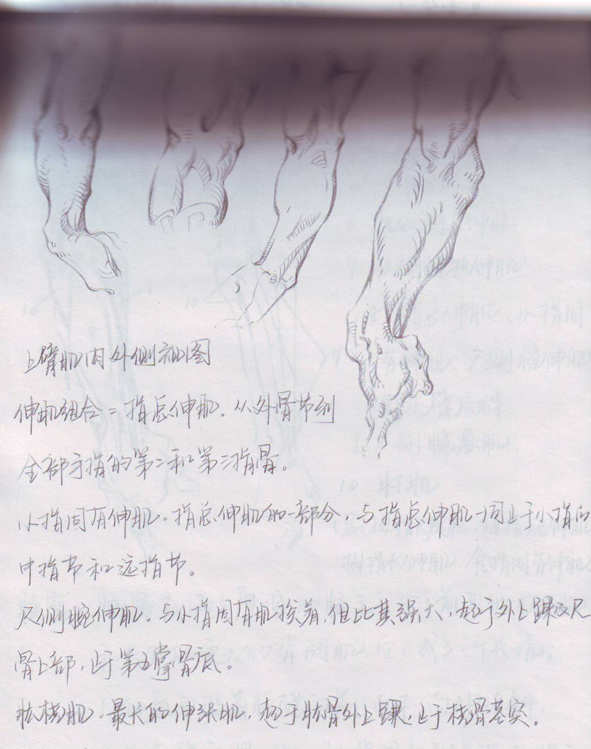 上臂肌内外侧示意图
伸肌组合二 指总伸肌. 从外骨节到
全部手指的第二和第三指骨。
小指固有伸肌. 指总伸肌的一部分, 与指总伸肌一同止于小指的
中指节和远指节。
尺侧腕伸肌. 与小指固有肌挨着, 但比其强大, 起于外上踝及尺
骨上部, 止于第五掌骨底。
肱桡肌. 最长的伸张肌, 起于肱骨外上踝, 止于桡骨茎突。